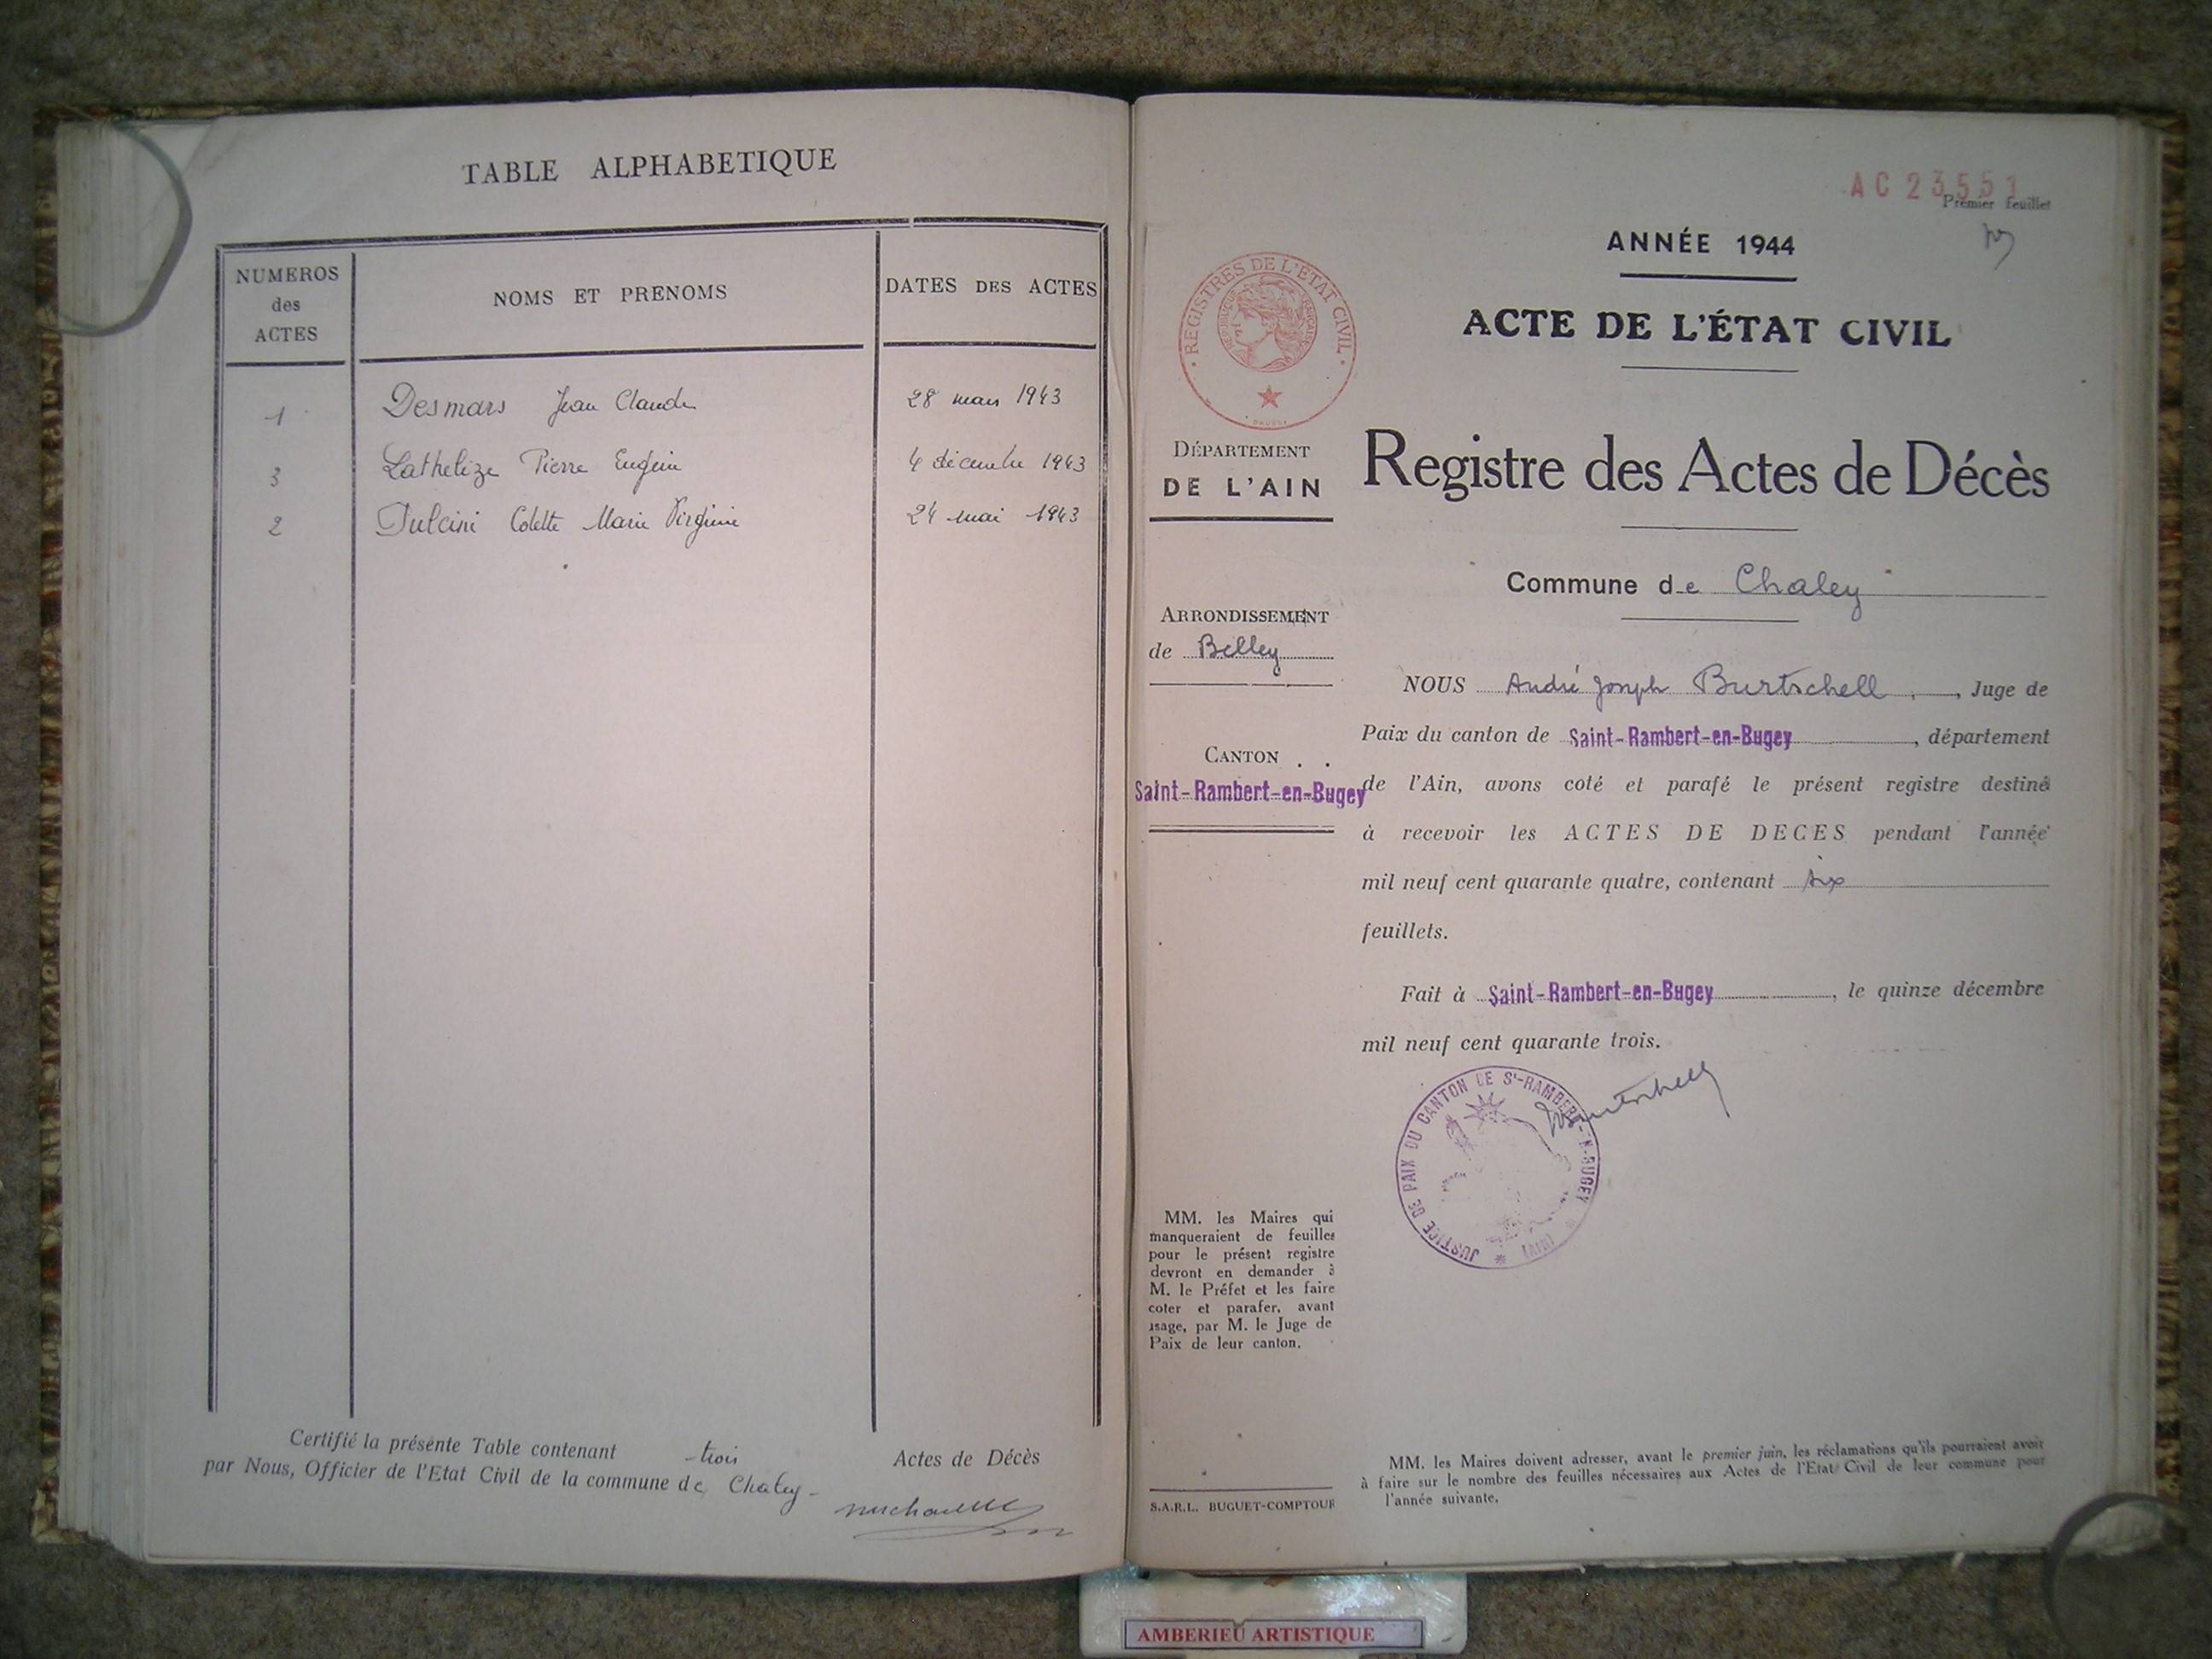 TABLE ALPHABETIQUE
NUMEROS des ACTES
NOMS ET PRENOMS
DATES DES ACTES
1 Desmars Jean Claude 28 mars 1943
3 Lathelize Pierre Eugène 4 décembre 1943
2 Colette Marie Virginie 24 mai 1943
Certifié la présente Table contenant trois Actes de Décès
par Nous, Officier de l'Etat Civil de la commune de Chaley
AC 23551
Premier feuillet
ANNÉE 1944
ACTE DE L'ÉTAT CIVIL
REGISTRES DE L'ETAT CIVIL
REPUBLIQUE FRANÇAISE
DÉPARTEMENT
DE L'AIN
Registre des Actes de Décès
Commune de Chaley
ARRONDISSEMENT
de Belley
CANTON
Saint-Rambert-en-Bugey
NOUS André Joseph Burtschell, Juge de
Paix du canton de Saint-Rambert-en-Bugey, département
de l'Ain, avons coté et parafé le présent registre destiné
à recevoir les ACTES DE DECES pendant l'année
mil neuf cent quarante quatre, contenant six
feuillets.
Fait à Saint-Rambert-en-Bugey, le quinze décembre
mil neuf cent quarante trois.
Burtschell
JUSTICE DE PAIX DU CANTON DE St-RAMBERT-EN-BUGEY (AIN)
MM. les Maires qui
manqueraient de feuilles
pour le présent registre
devront en demander à
M. le Préfet et les faire
coter et parafer, avant
usage, par M. le Juge de
Paix de leur canton.
S.A.R.L. BUGUET-COMPTOUR
MM. les Maires doivent adresser, avant le premier juin, les réclamations qu'ils pourraient avoir
à faire sur le nombre des feuilles nécessaires aux Actes de l'Etat Civil de leur commune pour
l'année suivante.
AMBERIEU ARTISTIQUE